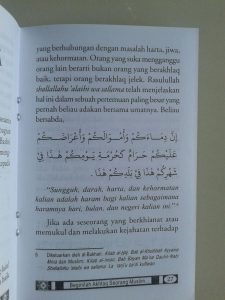 yang berhubungan dengan masalah harta, jiwa,
atau kehormatan. Orang yang suka mengganggu
orang lain berarti bukan orang yang berakhlaq
baik, tetapi orang berakhlaq jelek. Rasulullah
shallallahu 'alaihi wa sallama telah menjelaskan
hal ini dalam sebuah pertemuan paling besar yang
pernah beliau adakan bersama umatnya. Beliau
bersabda,
إِنَّ دِمَاءَكُمْ وَأَمْوَالَكُمْ وَأَعْرَاضَكُمْ
عَلَيْكُمْ حَرَامٌ كَحُرْمَةِ يَوْمِكُمْ هَذَا فِي
شَهْرِكُمْ هَذَا فِي بَلَدِكُمْ هَذَا
"Sungguh, darah, harta, dan kehormatan
kalian adalah haram bagi kalian sebagaimana
haramnya hari, bulan, dan negeri kalian ini."
Jika ada seseorang yang berkhianat atau
memukul dan melakukan kejahatan terhadap
Dikeluarkan oleh al-Bukhari, Kitab
Beginilah Akhlaq Seorang Muslim